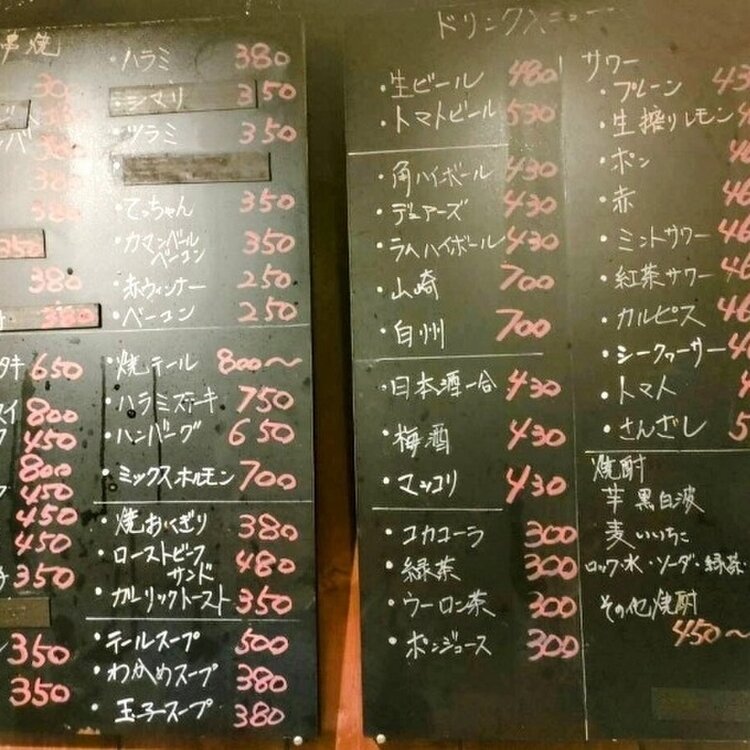 串焼
・ハラミ 380
・シマリ 350
・ツラミ 350
・てっちゃん 350
・カマンベール
ベーコン 350
・赤ウィンナー 250
・ベーコン 250
・焼テール 800〜
・ハラミステーキ 750
・ハンバーグ 650
・ミックスホルモン 700
・焼おにぎり 380
・ローストビーフ
サンド 480
・ガーリックトースト 350
・テールスープ 500
・わかめスープ 380
・玉子スープ 380
380
350
380
380
タキ 650
800
450
800
450
450
450
350
350
350
ドリンクメニュー
・生ビール 480
・トマトビール 530
・角ハイボール 430
・デュアーズ 430
・ラムハイボール 430
・山崎 700
・白州 700
・日本酒一合 430
・梅酒 430
・マッコリ 430
・コカコーラ 300
・緑茶 300
・ウーロン茶 300
・ポンジュース 300
サワー
・プレーン 43
・生搾りレモン
・ポン
・赤 46
・ミントサワー 46
・紅茶サワー 46
・カルピス 46
・シークヮーサー
・トマト
・さんざし 5
焼酎
芋 黒白波
麦 いいちこ
ロック・水・ソーダ・緑茶・
その他焼酎
450〜